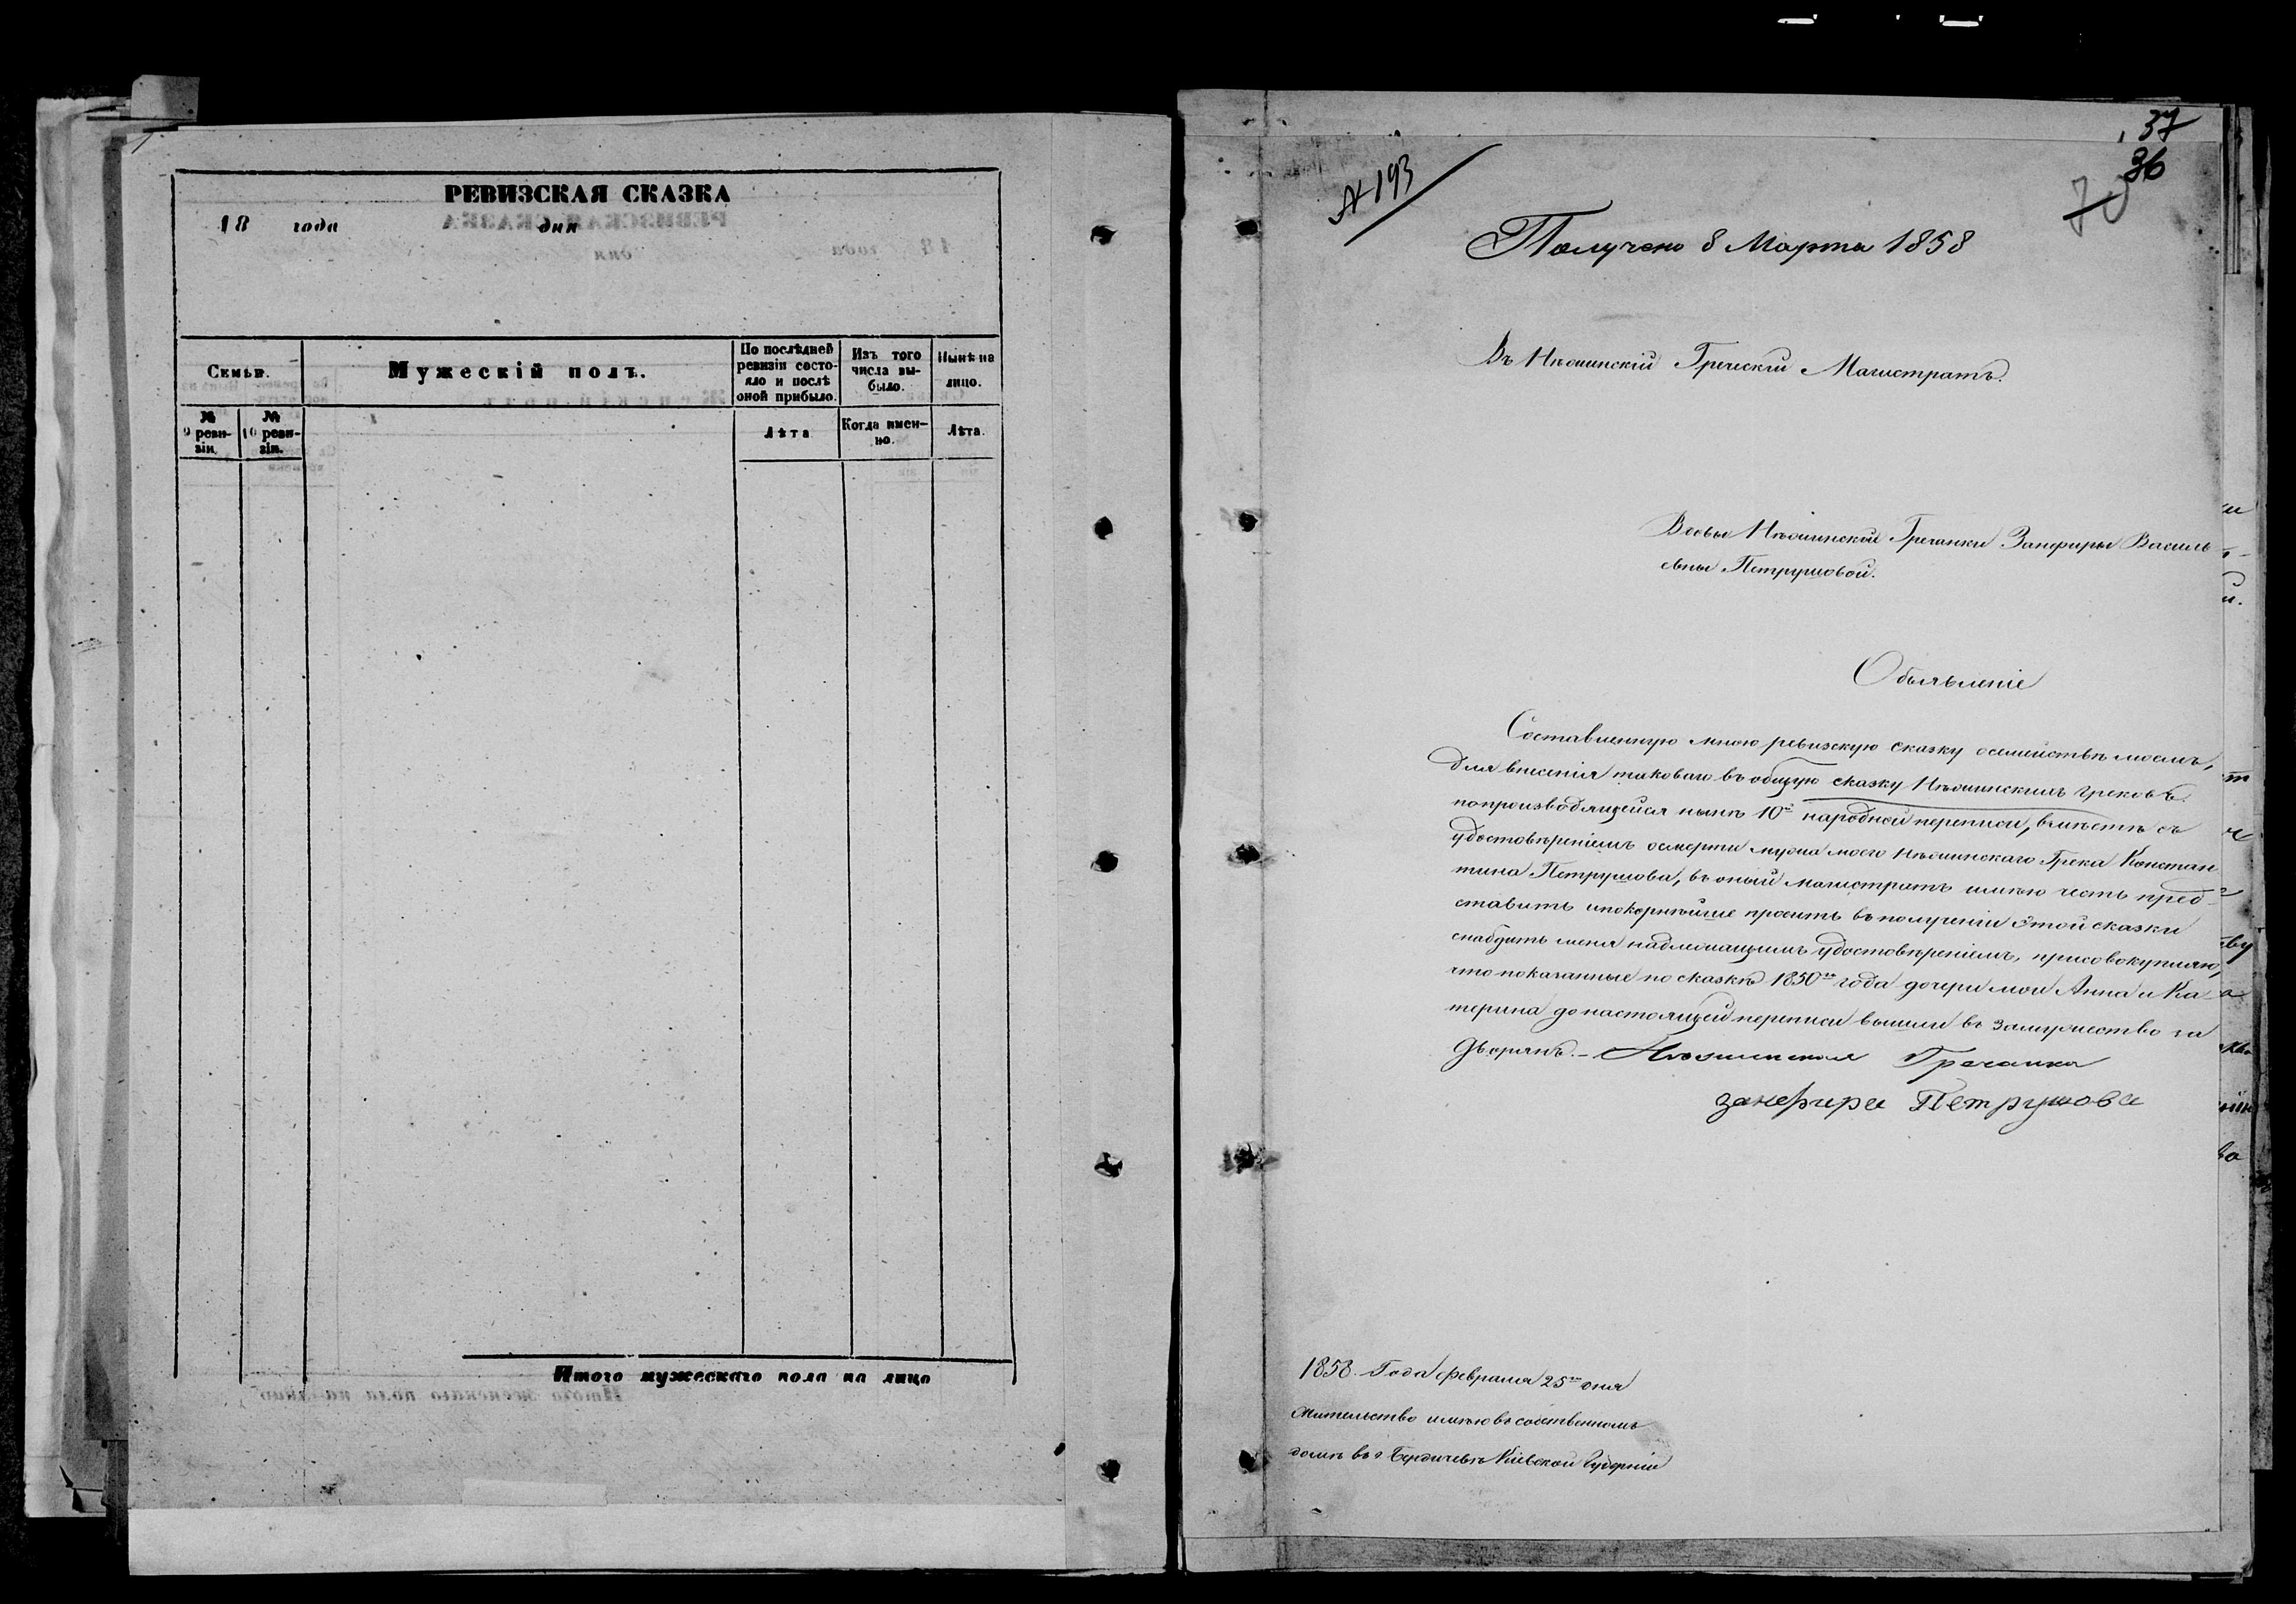 РЕВИЗСКАЯ СКАЗКА
18 года дня
Семьи.
Мужескій полъ.
По послѣдней ревизіи состояло и послѣ оной прибыло.
Изъ того числа выбыло.
Нынѣ на лицо.
№ 9 ревизіи.
№ 10 ревизіи.
Лѣта
Когда именно.
Лѣта.
Итого мужескаго пола на лицо
37
36
70
№ 193
Получено 8 Марта 1858
Въ Нѣжинскій Греческій Магистратъ.
Вдовы Нѣжинской Гречанки Занфиры Василь
евны Петрушовой.
Объявленіе
Составленную мною ревизскую сказку осемействѣ моемъ,
для внесенія таковаго въ общую сказку Нѣжинскихъ грековъ
попроизводящейся нынѣ 10й народной переписи, вмѣстѣ съ
удостовѣреніемъ осмерти мужа моего Нѣжинскаго Грека Констан
тина Петрушова, въ оный магистратъ имѣю честь пред-
ставить ипокорнѣйше просить въ полученіи Этой сказки
снабдить меня надлежащимъ удостовѣреніемъ, присовокупляю,
что показанные по сказкѣ 1850го года дочери мои Анна и Ка
терина до настоящей переписи вышли въ замужество за
Дворянъ. - Нѣзинская Гречанка
занфира Петрушова
1858 Года февраля 25го дня
Жительство имѣю въ собственномъ
домѣ въ г Бердичевѣ Кіевской Губерніи